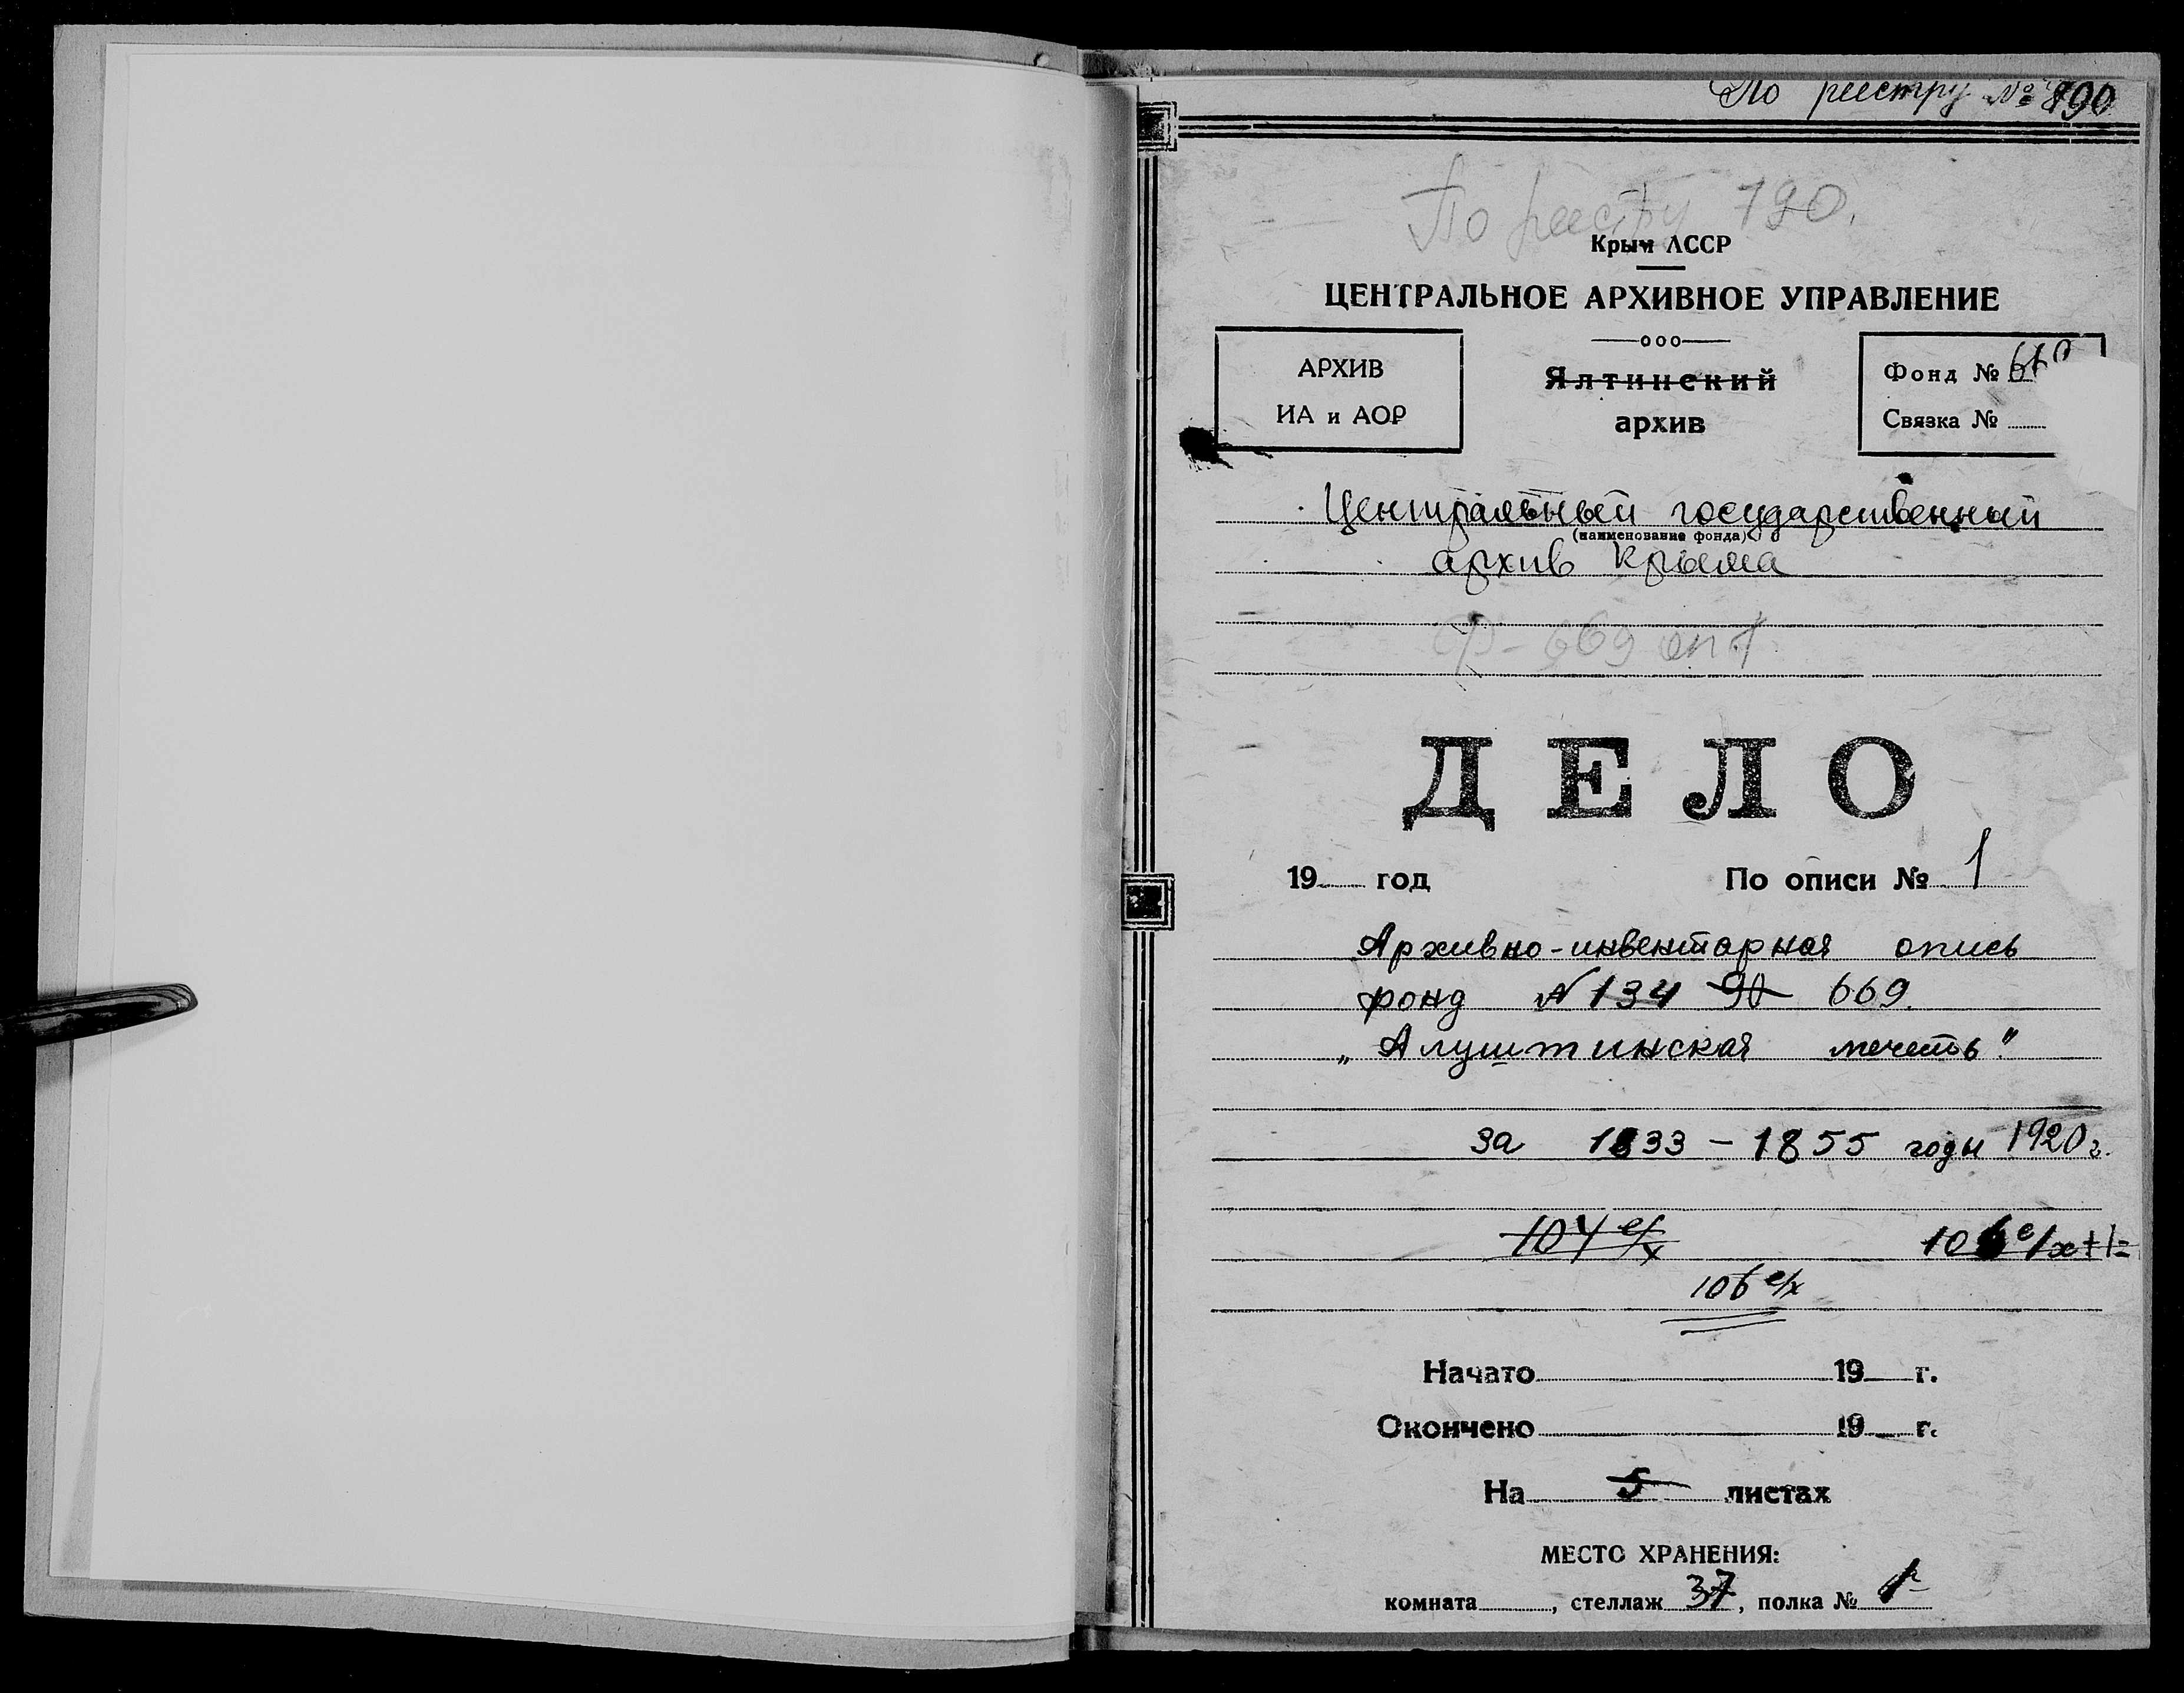 По реестру № 790
По реестру 790.
Крым АССР
ЦЕНТРАЛЬНОЕ АРХИВНОЕ УПРАВЛЕНИЕ
АРХИВ
ИА и АОР
Ялтинский
архив
Фонд №
Связка №
Центральный государственный
(наименование фонда)
архив Крыма
Ф-669 оп.1
ДЕЛО
19 год По описи № 1
Архивно-инвентарная опись
фонд № 134 90 669.
„Алуштинская мечеть"
за 1833 – 1855 годы 1920 г.
104 е/х 106 е/х+1=
106 е/х
Начато 19 г.
Окончено 19 г.
На 5 листах
МЕСТО ХРАНЕНИЯ:
комната , стеллаж 37, полка № 1